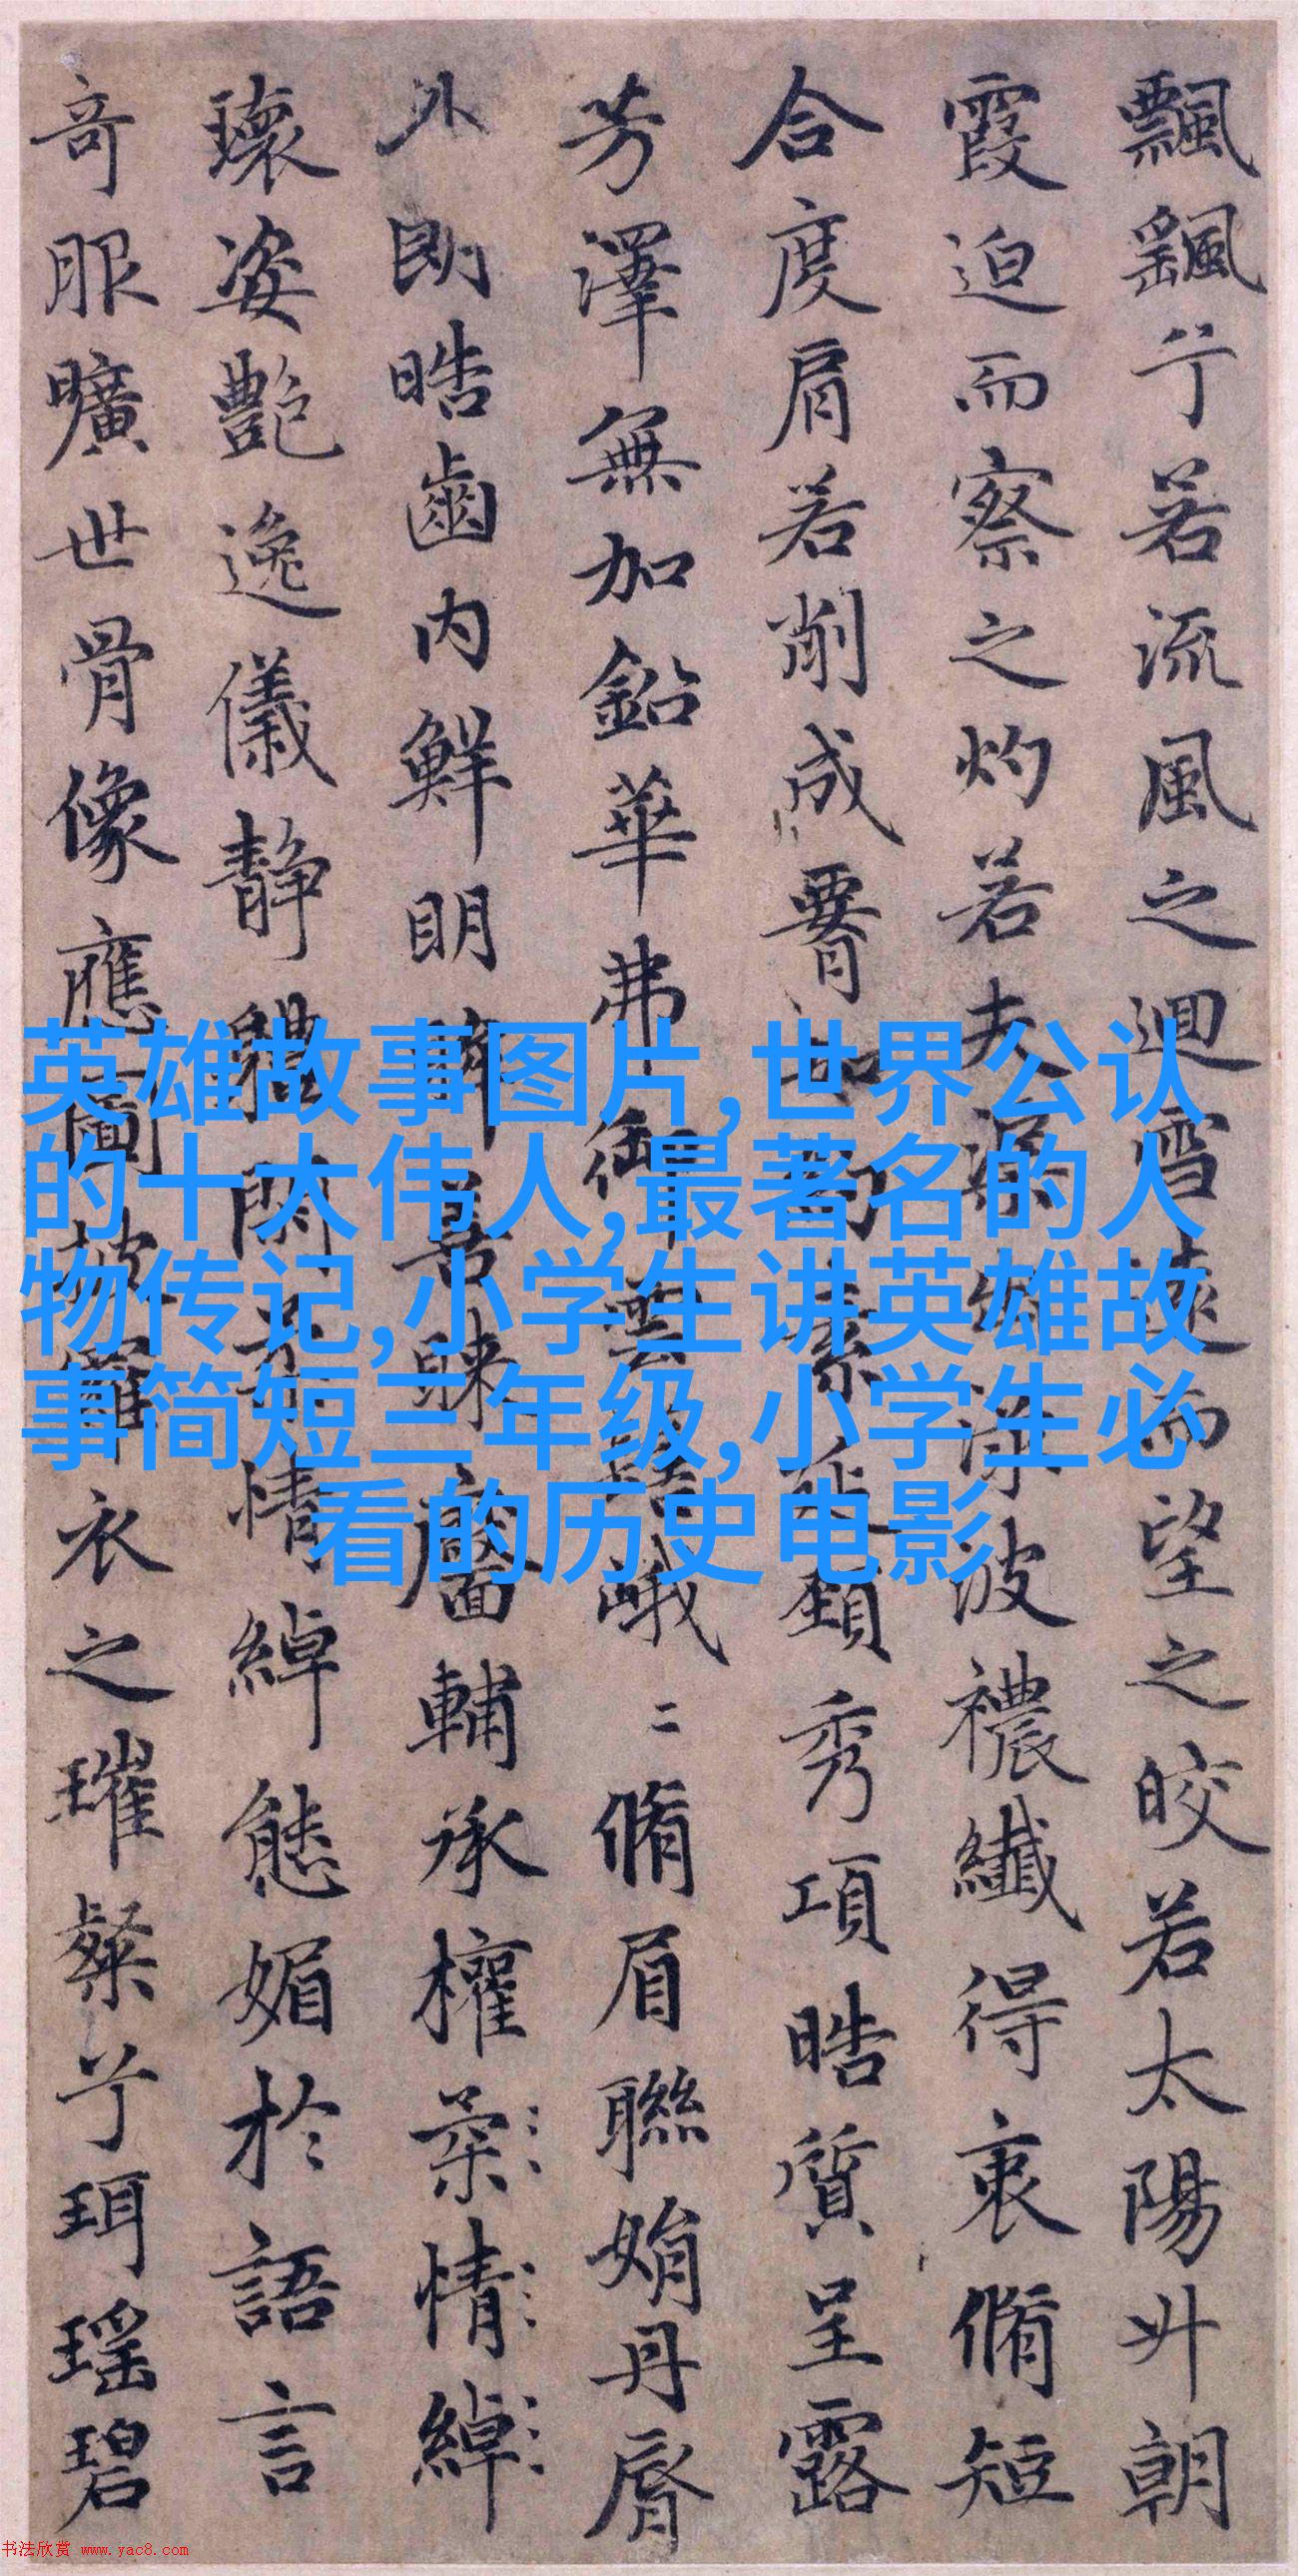 飄飖兮若流風之迴雪遠而望之皎若太陽升朝
霞迫而察之灼若夫渠出渌波襛纖得衷脩短
合度肩若削成如約素延頸秀項晧質呈露
芳澤無加鉛華弗御雲髻峨二脩眉聯娟丹脣
外朗晧齒内鮮明眸善睞靨輔承權柔情綽
瓌姿艷逸儀靜體閑柔情綽態媚於語言
奇服曠世骨像應圖披羅衣之璀粲兮珥瑤碧
英雄故事图片,世界公认
的十大伟人,最著名的人
物传记,小学生讲英雄故
事简短三年级,小学生必
看的历史电影
书法欣赏 www.yac8.com